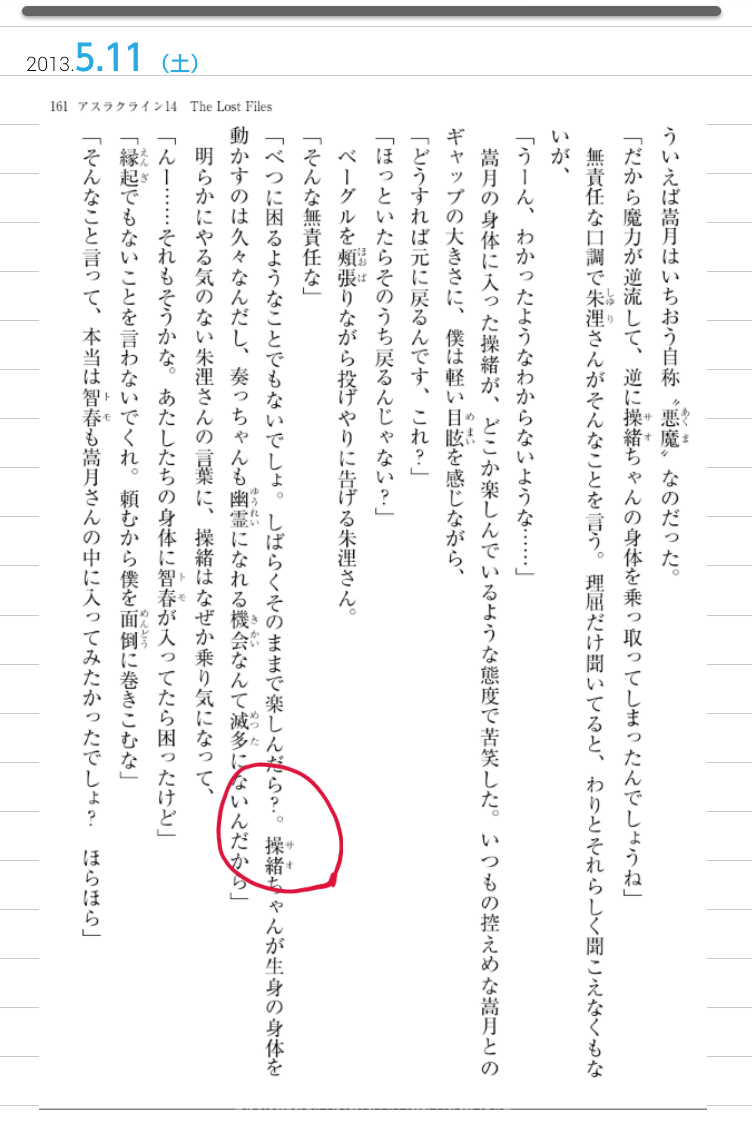 2013.5.11（土）
161 アスラクライン14 The Lost Files
ういえば嵩月はいちおう自称〝悪魔〟なのだった。
「だから魔力が逆流して、逆に操緒ちゃんの身体を乗っ取ってしまったんでしょうね」
無責任な口調で朱浬さんがそんなことを言う。理屈だけ聞いてると、わりとそれらしく聞こえなくもな
いが、
「うーん、わかったようなわからないような……」
嵩月の身体に入った操緒が、どこか楽しんでいるような態度で苦笑した。いつもの控えめな嵩月との
ギャップの大きさに、僕は軽い目眩を感じながら、
「どうすれば元に戻るんです、これ？」
「ほっといたらそのうち戻るんじゃない？」
ベーグルを頬張りながら投げやりに告げる朱浬さん。
「そんな無責任な」
「べつに困るようなことでもないでしょ。しばらくそのままで楽しんだら？。操緒ちゃんが生身の身体を
動かすのは久々なんだし、奏っちゃんも幽霊になれる機会なんて滅多にないんだから」
明らかにやる気のない朱浬さんの言葉に、操緒はなぜか乗り気になって、
「んー……それもそうかな。あたしたちの身体に智春が入ってたら困ったけど」
「縁起でもないことを言わないでくれ。頼むから僕を面倒に巻きこむな」
「そんなこと言って、本当は智春も嵩月さんの中に入ってみたかったでしょ？　ほらほら」